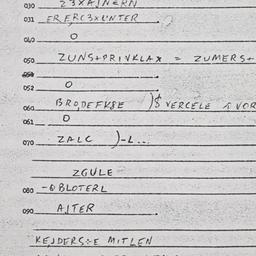 030 Z3XAINERN
031 ERERC3XUNTER
040 O
050 ZUNS+PRIVKLAX = ZUMERS+
051
052 O
060 BRO,DEFK8E )$ VERCELE
061 O
070 ZALC )-L...
ZGULE
080 -BLOTERL
090 AJTER
KEJDERS:E MITLEN